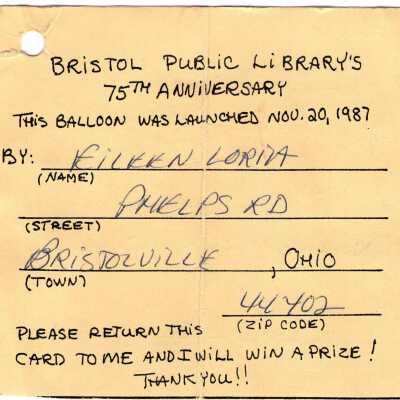 BRISTOL PUBLIC LIBRARY'S
75TH ANNIVERSARY
THIS BALLOON WAS LAUNCHED NOV. 20, 1987
BY: EILEEN LORITA
(NAME)
PHELPS RD
(STREET)
BRISTOLVILLE, OHIO
(TOWN)
44402
(ZIP CODE)
PLEASE RETURN THIS
CARD TO ME AND I WILL WIN A PRIZE!
THANK YOU!!